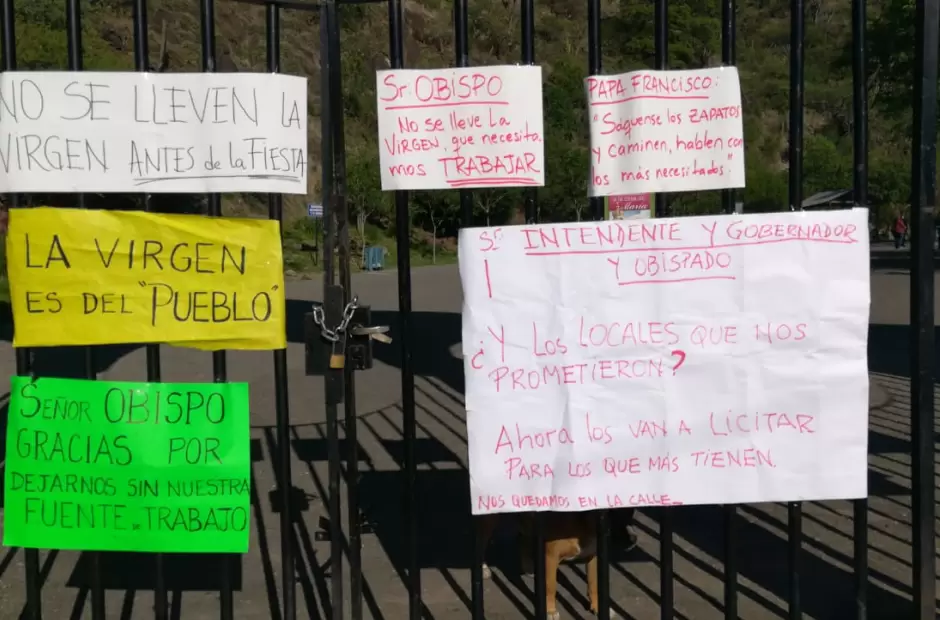 NO SE LLEVEN LA
VIRGEN ANTES de la FIESTA
Sr OBISPO
No se lleve La
VIRGEN, que necesita
mos TRABAJAR
PAPA FRANCISCO:
"Sáquense los ZAPATOS
y caminen, hablen con
los más necesitados".
LA VIRGEN
ES DEL "PUEBLO"
SEÑOR OBISPO
GRACIAS POR
DEJARNOS SIN NUESTRA
FUENTE DE TRABAJO
Sr INTENDENTE Y GOBERNADOR
Y OBISPADO
¿Y LOS LOCALES QUE NOS
PROMETIERON?
Ahora los VAN A LICITAR
PARA LOS QUE MÁS TIENEN.
NOS QUEDAMOS EN LA CALLE_